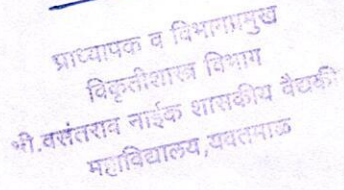 प्राध्यापक व विभागप्रमुख
विकृतीशास्त्र विभाग
श्री.वसंतराव नाईक शासकीय वैद्यकी
महाविद्यालय,यवतमाळ